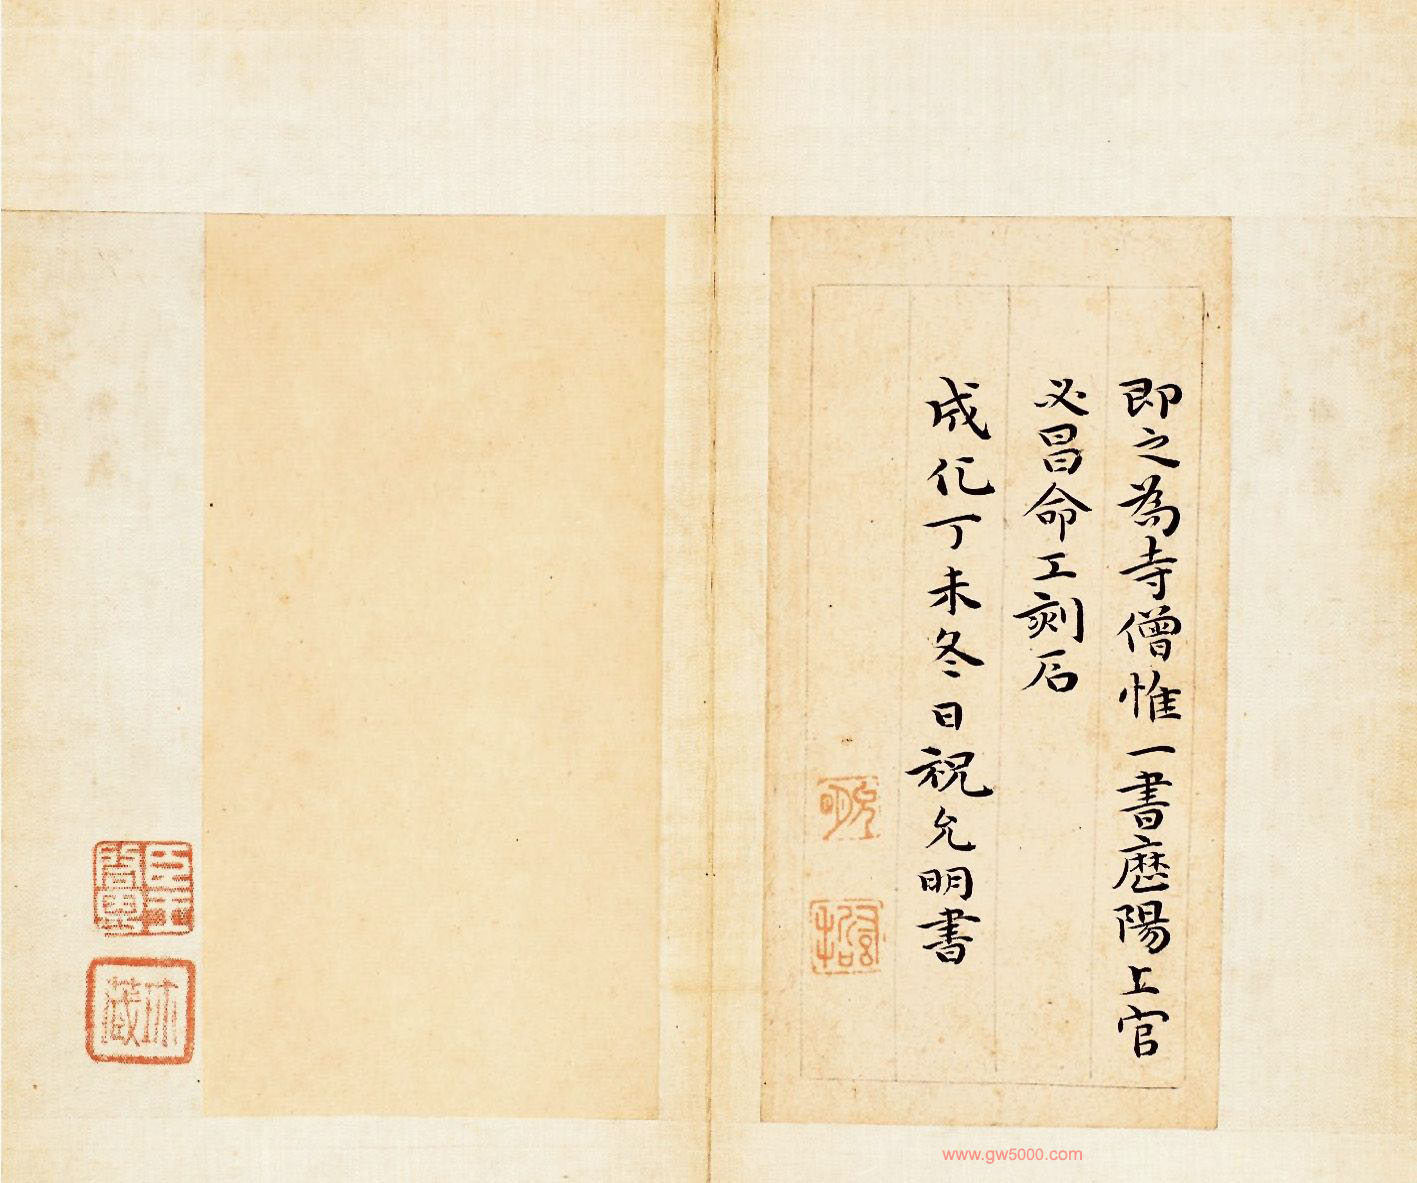 即之為寺僧惟一書歷陽上官
必昌命工刻石
成化丁未冬日祝允明書
允明
臣王
啓𤲞
珎藏
www.gw5000.com